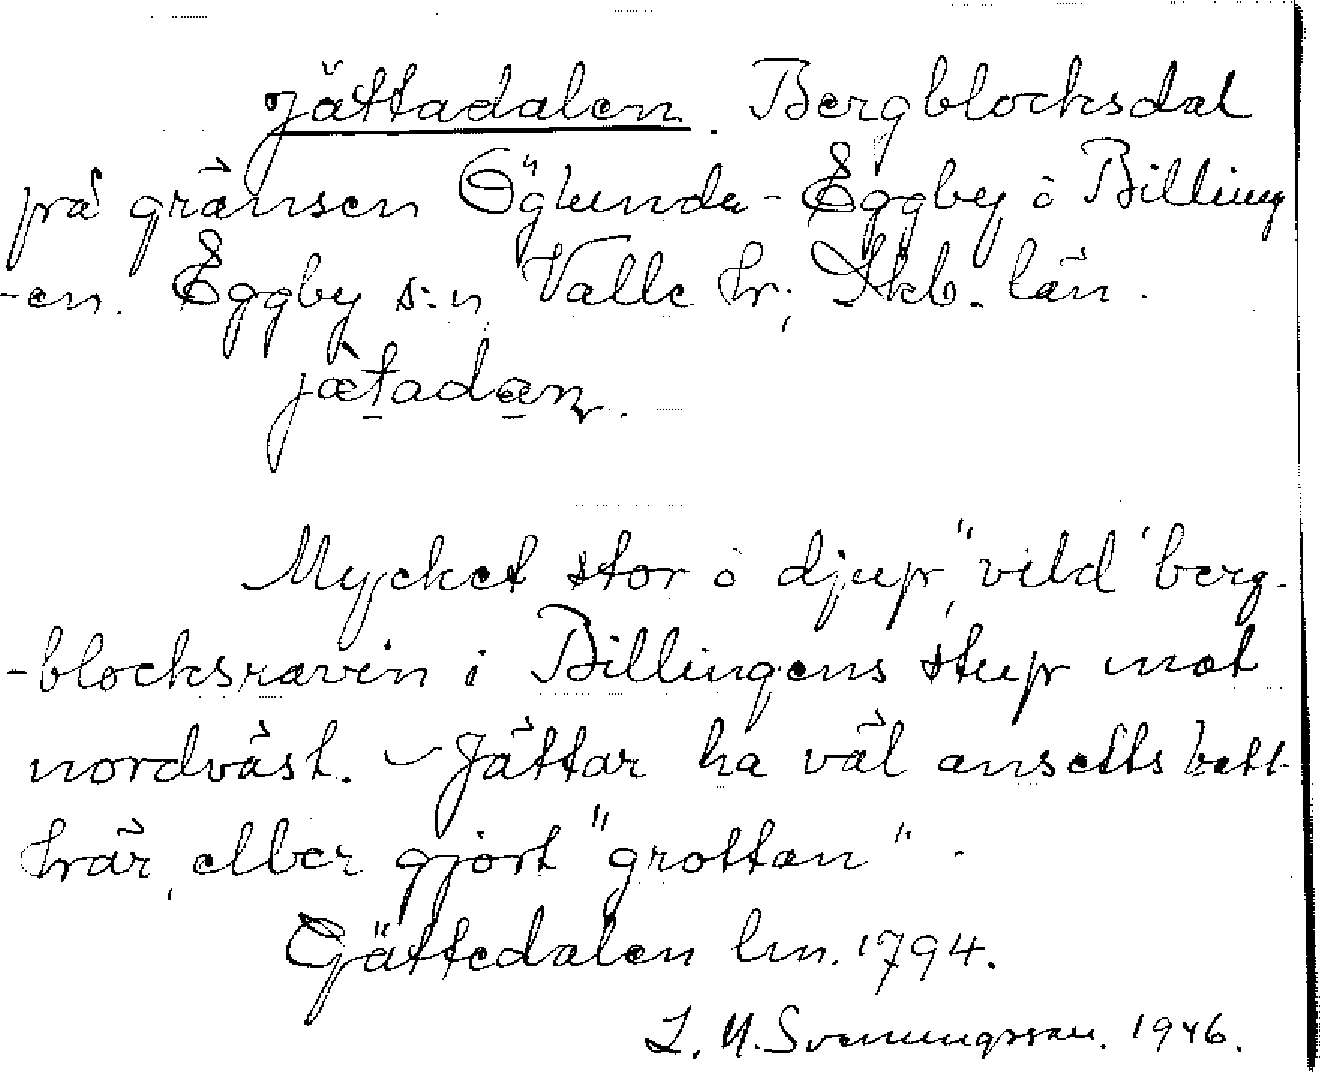 Jättadalen. Bergblocksdal
på gränsen Öglunda-Eggby å Billing
-en. Eggby s:n, Valle hr, Skb. län.
jätadan.
Mycket stor o djup, "vild" berg-
-blocksravin i Billingens stup mot
nordväst. – Jättar ha väl ansetts bott
här, eller gjort "grottan".
Gjättedalen lm. 1794.